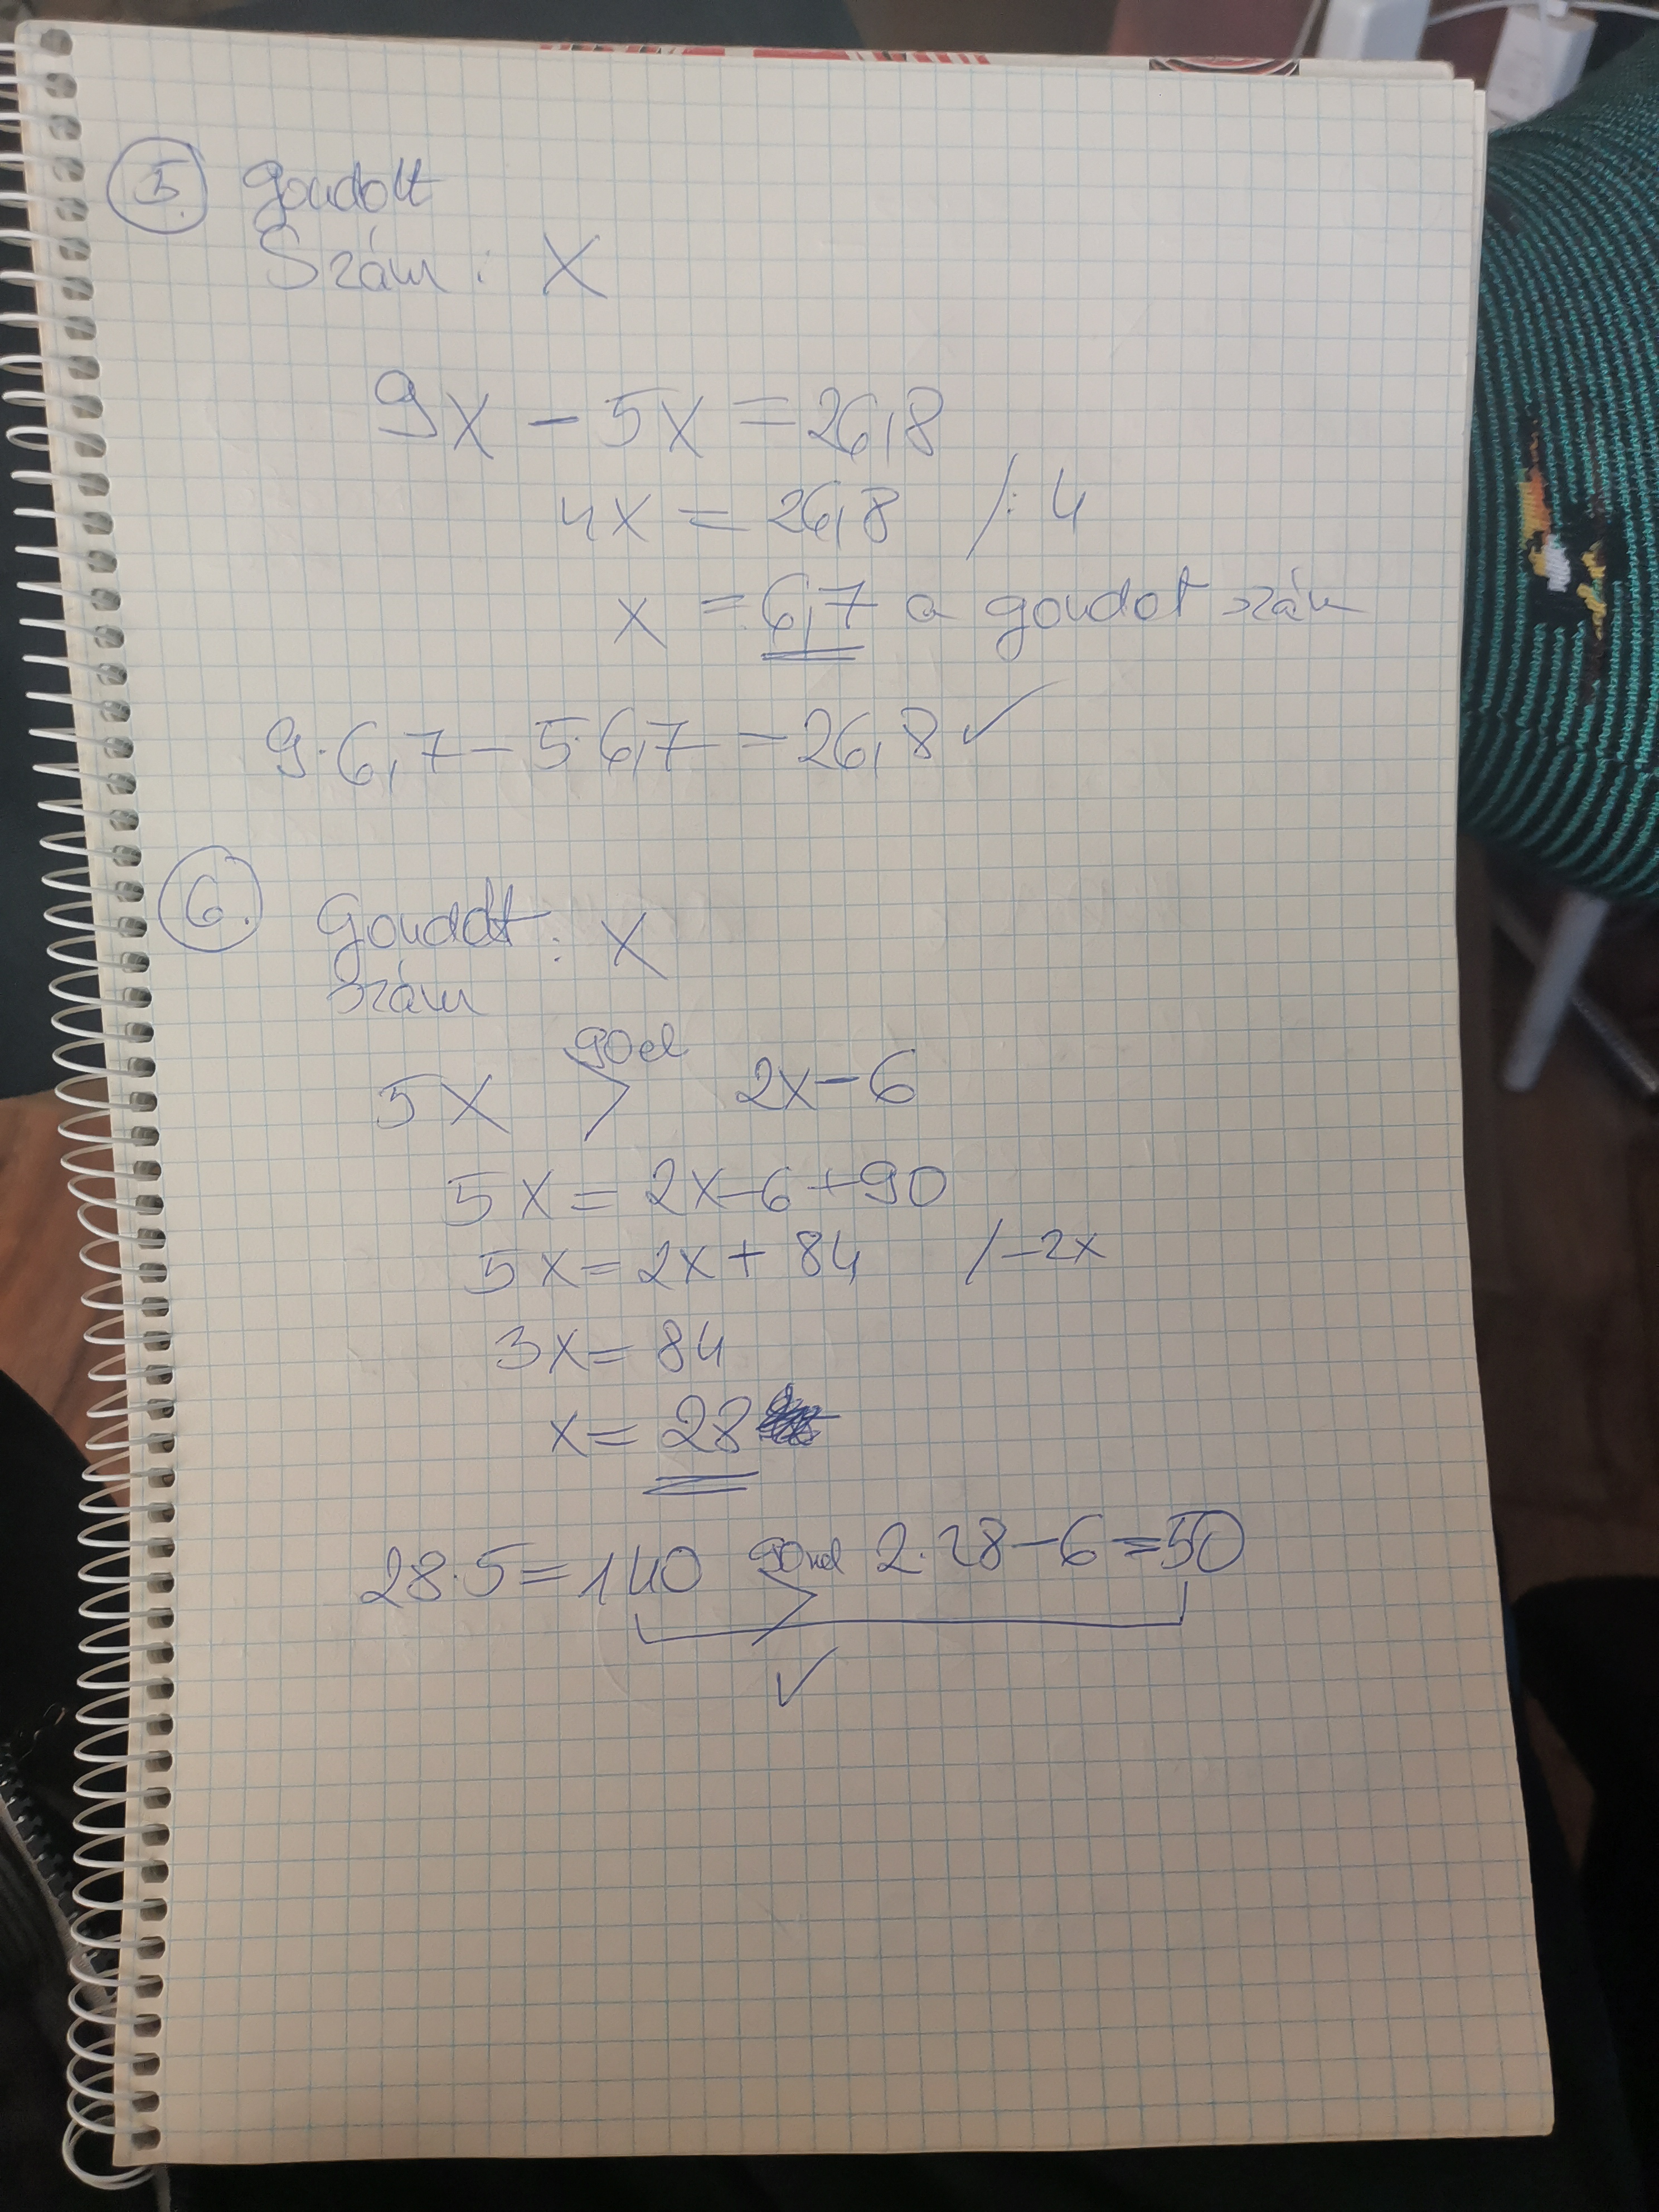 5. gondolt
Szám: X
9x - 5x = 26,8
4x = 26,8 /: 4
x = 6,7 a gondot szám
9·6,7 - 5·6,7 = 26,8 ✓
6. Gondolt: X
szám
90el
5X > 2x-6
5x = 2x-6+90
5x = 2x + 84 /-2x
3x = 84
x = 28
28·5 = 140 > 90nel 2·28-6=50
✓